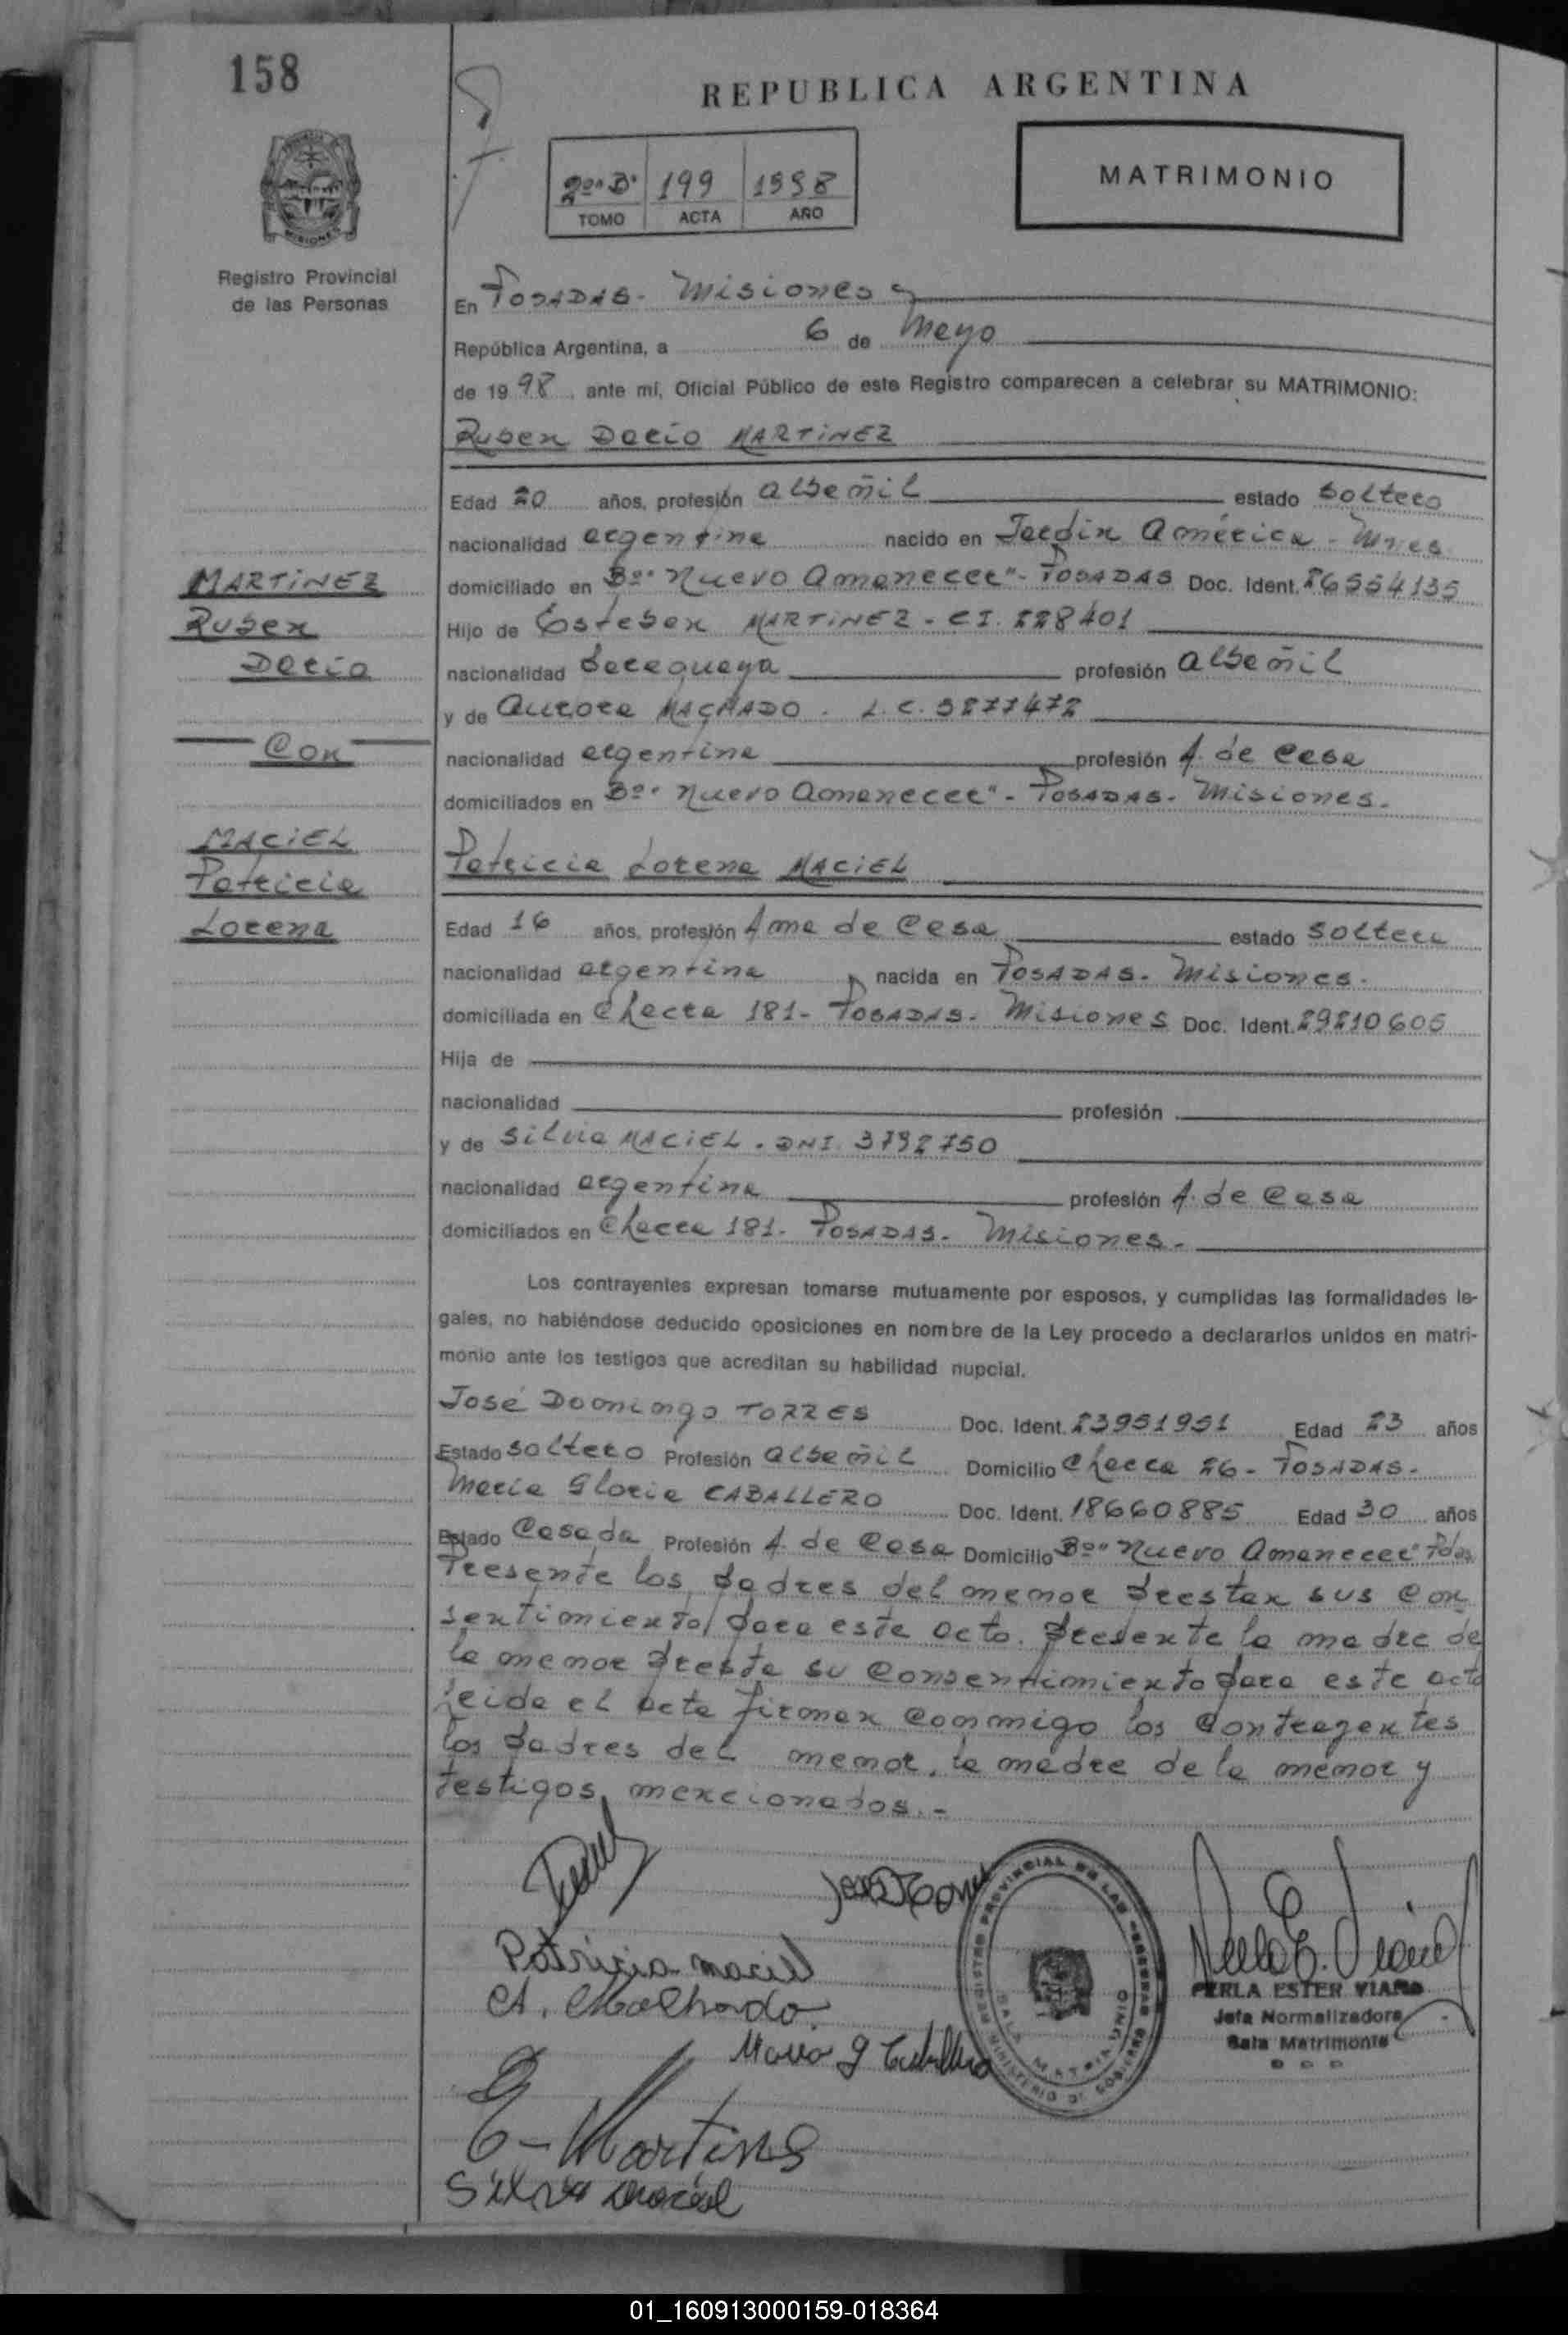 158
REPUBLICA ARGENTINA
2º "B" 199 1998
TOMO ACTA AÑO
MATRIMONIO
MISIONES
Registro Provincial
de las Personas
En POSADAS - Misiones
República Argentina, a 6 de Mayo
de 1998, ante mí, Oficial Público de este Registro comparecen a celebrar su MATRIMONIO:
Ruben Dario MARTINEZ
Edad 20 años, profesión albañil estado soltero
nacionalidad argentina nacido en Jardin América - Mnes.
domiciliado en Bº "Nuevo Amanecer" - POSADAS Doc. Ident. 26554135
MARTINEZ
Ruben
Dario
Con
MACIEL
Patricia
Lorena
Hijo de Esteban MARTINEZ - CI. 228401
nacionalidad paraguaya profesión albañil
y de Aurora MACHADO . L.C. 5877472
nacionalidad argentina profesión A. de casa
domiciliados en Bº "Nuevo Amanecer" - POSADAS - Misiones.
Patricia Lorena MACIEL
Edad 16 años, profesión Ama de Casa estado soltera
nacionalidad argentina nacida en POSADAS - Misiones.
domiciliada en Checra 181 - POSADAS - Misiones Doc. Ident. 29210605
Hija de
nacionalidad profesión
y de Silvia MACIEL . DNI. 3792750
nacionalidad argentina profesión A. de Casa
domiciliados en Chacra 181 - POSADAS - Misiones.-
Los contrayentes expresan tomarse mutuamente por esposos, y cumplidas las formalidades le-
gales, no habiéndose deducido oposiciones en nombre de la Ley procedo a declararlos unidos en matri-
monio ante los testigos que acreditan su habilidad nupcial.
José Domingo TORRES Doc. Ident. 23951951 Edad 23 años
Estado soltero Profesión albañil Domicilio Chacra 26 - POSADAS.
Maria Gloria CABALLERO Doc. Ident. 18660885 Edad 30 años
Estado Casada Profesión A. de Casa Domicilio Bº "Nuevo Amanecer" Pdas.
Presente los padres del menor prestan sus con
sentimiento para este acto. Presente la madre de
la menor presta su consentimiento para este acto
leida el acta firman conmigo los contrayentes
los padres del menor, la madre de la menor y
testigos mencionados.-
Patricia maciel
A. Machado
Maria G Caballero
E- Martines
Silvia maciel
REGISTRO PROVINCIAL DE LAS PERSONAS
MINISTERIO DE GOBIERNO
SALA MATRIMONIO
PERLA ESTER VIANA
Jefa Normalizadora
Sala Matrimonio
01_160913000159-018364